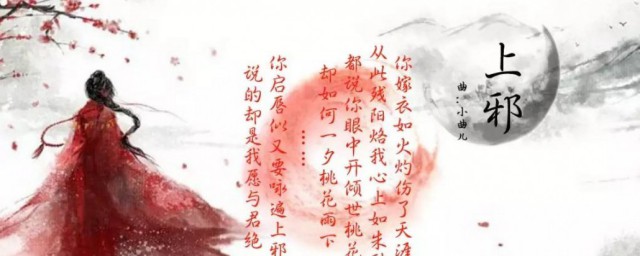 上邪
曲:小曲儿
你嫁衣如火灼伤了天涯
从此残阳烙我心上如朱
都说你眼中开倾世桃花
却如何一夕桃花雨下
……
你启唇似又要咏遍上邪
说的却是我愿与君绝